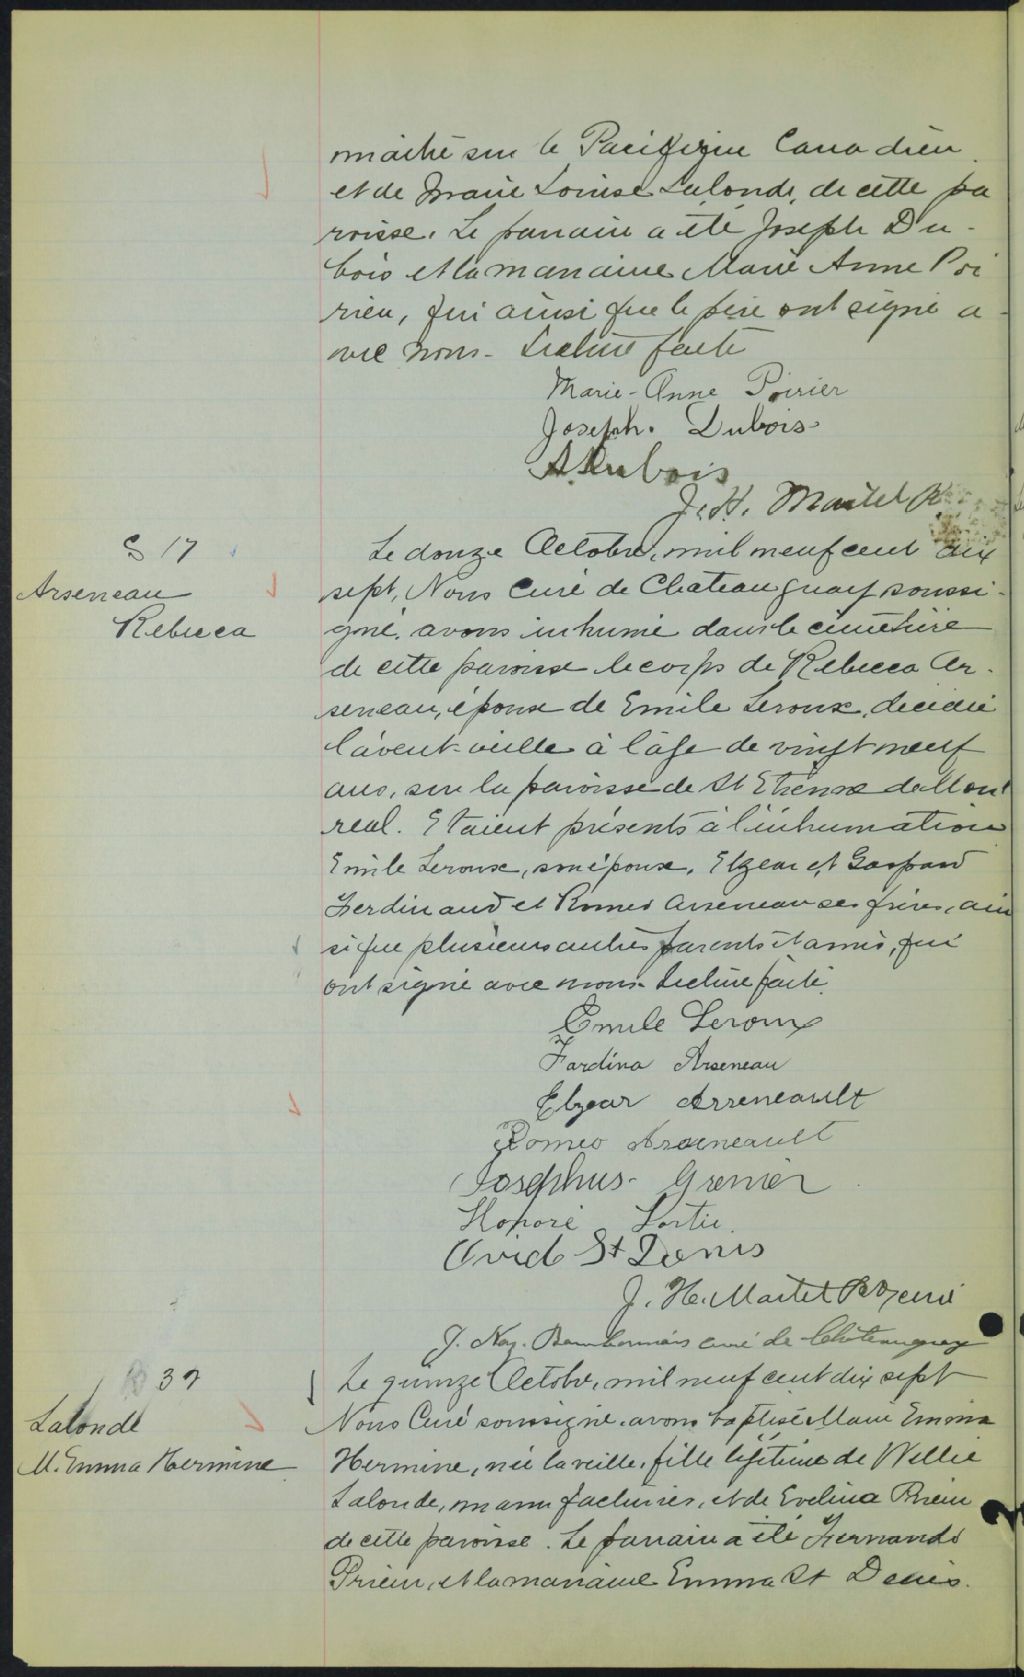 maitre sur le Pacifique Canadien
et de Marie Louise Lalonde, de cette pa
roisse. Le parrain a été Joseph Du-
bois et la marraine Marie Anne Poi
rier, qui ainsi que le père ont signé a-
vec nous. Lecture faite
Marie-Anne Poirier
Joseph. Dubois
A. Dubois
J. H. Martel
S 17
Arseneau
Rebecca
Le douze Octobre, mil neuf cent dix
sept, Nous Curé de Chateauguay soussi-
gné, avons inhumé dans le cimetière
de cette paroisse le corps de Rebecca Ar-
seneau, épouse de Emile Leroux, décédée
l'avant-veille à l'âge de vingt neuf
ans, sur la paroisse de St Etienne de Mont
real. Etaient présents à l'inhumation
Emile Leroux, son époux, Elzear et Gaspard
Ferdinand et Romeo Arseneau ses frères, ain
si que plusieurs autres parents et amis, qui
ont signé avec nous. Lecture faite.
Emile Leroux
Fardina Arseneau
Elzear Arseneault
Romeo Arseneault
Josephus Grenier
Honoré Lortie
Ovid St Denis
J. H. Martel Ptre curé
J. Naz. curé de Châteauguay
B 39
Lalonde
M. Emma Hermine
Le quinze Octobre, mil neuf cent dix sept
Nous Curé soussigné, avons baptisé Marie Emma
Hermine, née la veille, fille légitime de Wellie
Lalonde, manufacturier, et de Evelina Prieur
de cette paroisse. Le parrain a été Fernando
Prieur, et la marraine Emma St Denis.